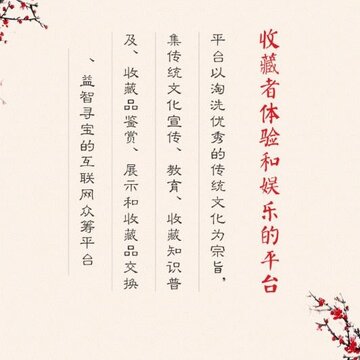 收藏者体验和娱乐的平台
平台以淘洗优秀的传统文化为宗旨，
集传统文化宣传、教育、收藏知识普
及、收藏品鉴赏、展示和收藏品交换
、益智寻宝的互联网众筹平台